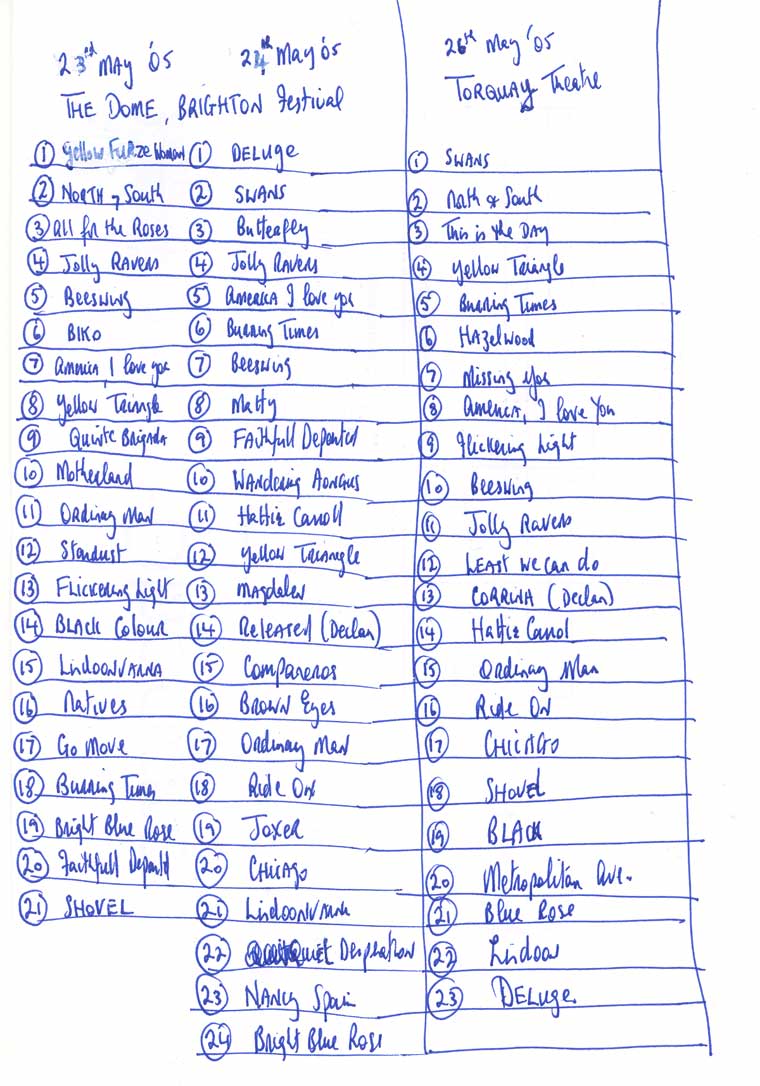 23rd MAY '05
24th May '05
THE DOME, BRIGHTON Festival
1 Yellow FURZE Woman
2 NORTH & South
3 all for the Roses
4 Jolly RAVERS
5 BEESWING
6 BIKO
7 America I love you
8 Yellow Triangle
9 Quinte Brigada
10 Motherland
11 ORDINARY MAN
12 Stardust
13 FLICKERING Light
14 BLACK COLOUR
15 LISDOONVARNA
16 Natives
17 Go Move
18 Burning Times
19 Bright Blue Rose
20 Faithfull Departd
21 SHOVEL
1 DELUGE
2 SWANS
3 Butterfly
4 Jolly RAVERS
5 AMERICA I love you
6 Burning Times
7 BEESWING
8 Matty
9 FAithfull Departed
10 WANDERING AONGUS
11 Hattie Carroll
12 Yellow TRIANGLE
13 Magdalen
14 Released (Declan)
15 Companeros
16 BROWN EYES
17 Ordinary Man
18 Ride On
19 JOXER
20 CHICAGO
21 LISDOONVARNA
22 Quiet Desperation
23 NANCY Spain
24 Bright Blue Rose
26th May '05
TORQUAY Theatre
1 SWANS
2 North & South
3 This is the DAY
4 Yellow Triangle
5 Burning Times
6 HAZELWOOD
7 Missing you
8 America, I love You
9 Flickering Light
10 BEESWING
11 Jolly Ravers
12 LEAST we can do
13 CORRINA (Declan)
14 Hattie Carrol
15 Ordinary Man
16 Ride On
17 CHICAGO
18 SHOVEL
19 BLACK
20 Metropolitan Ave.
21 Blue Rose
22 Lisdoon
23 DELUGE